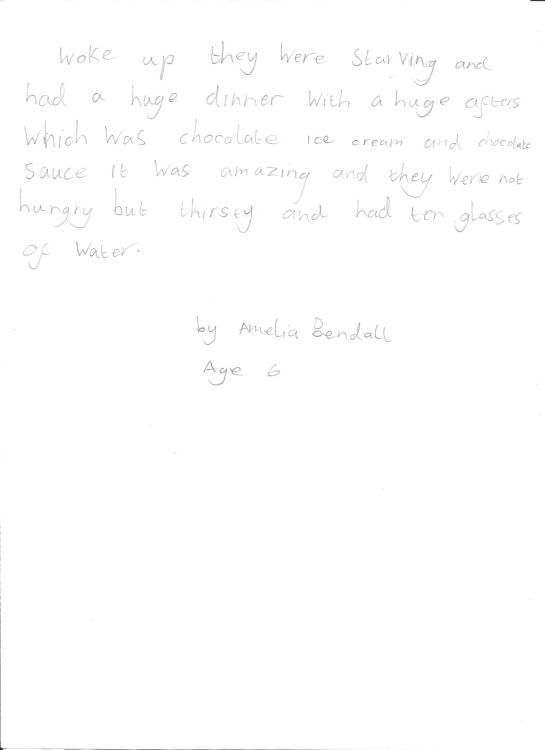 Woke up they were starving and
had a huge dinner with a huge afters
which was chocolate ice cream and chocolate
sauce It was amazing and they were not
hungry but thirsty and had ten glasses
of water.
by Amelia Bendall
Age 6